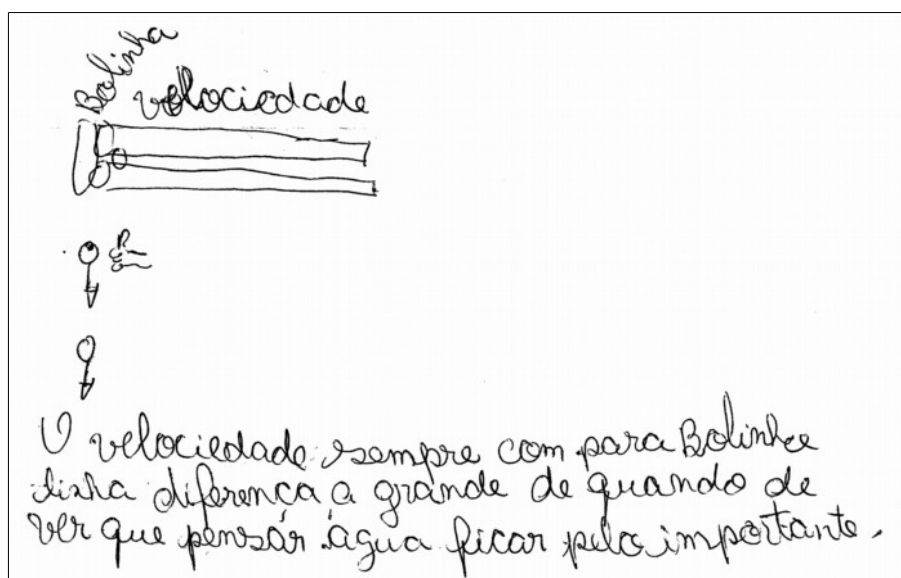 Bolinha
velociedade
O velociedade sempre com para Bolinha
linha diferença a grande de quando de
ver que pensár água ficar pelo importante.